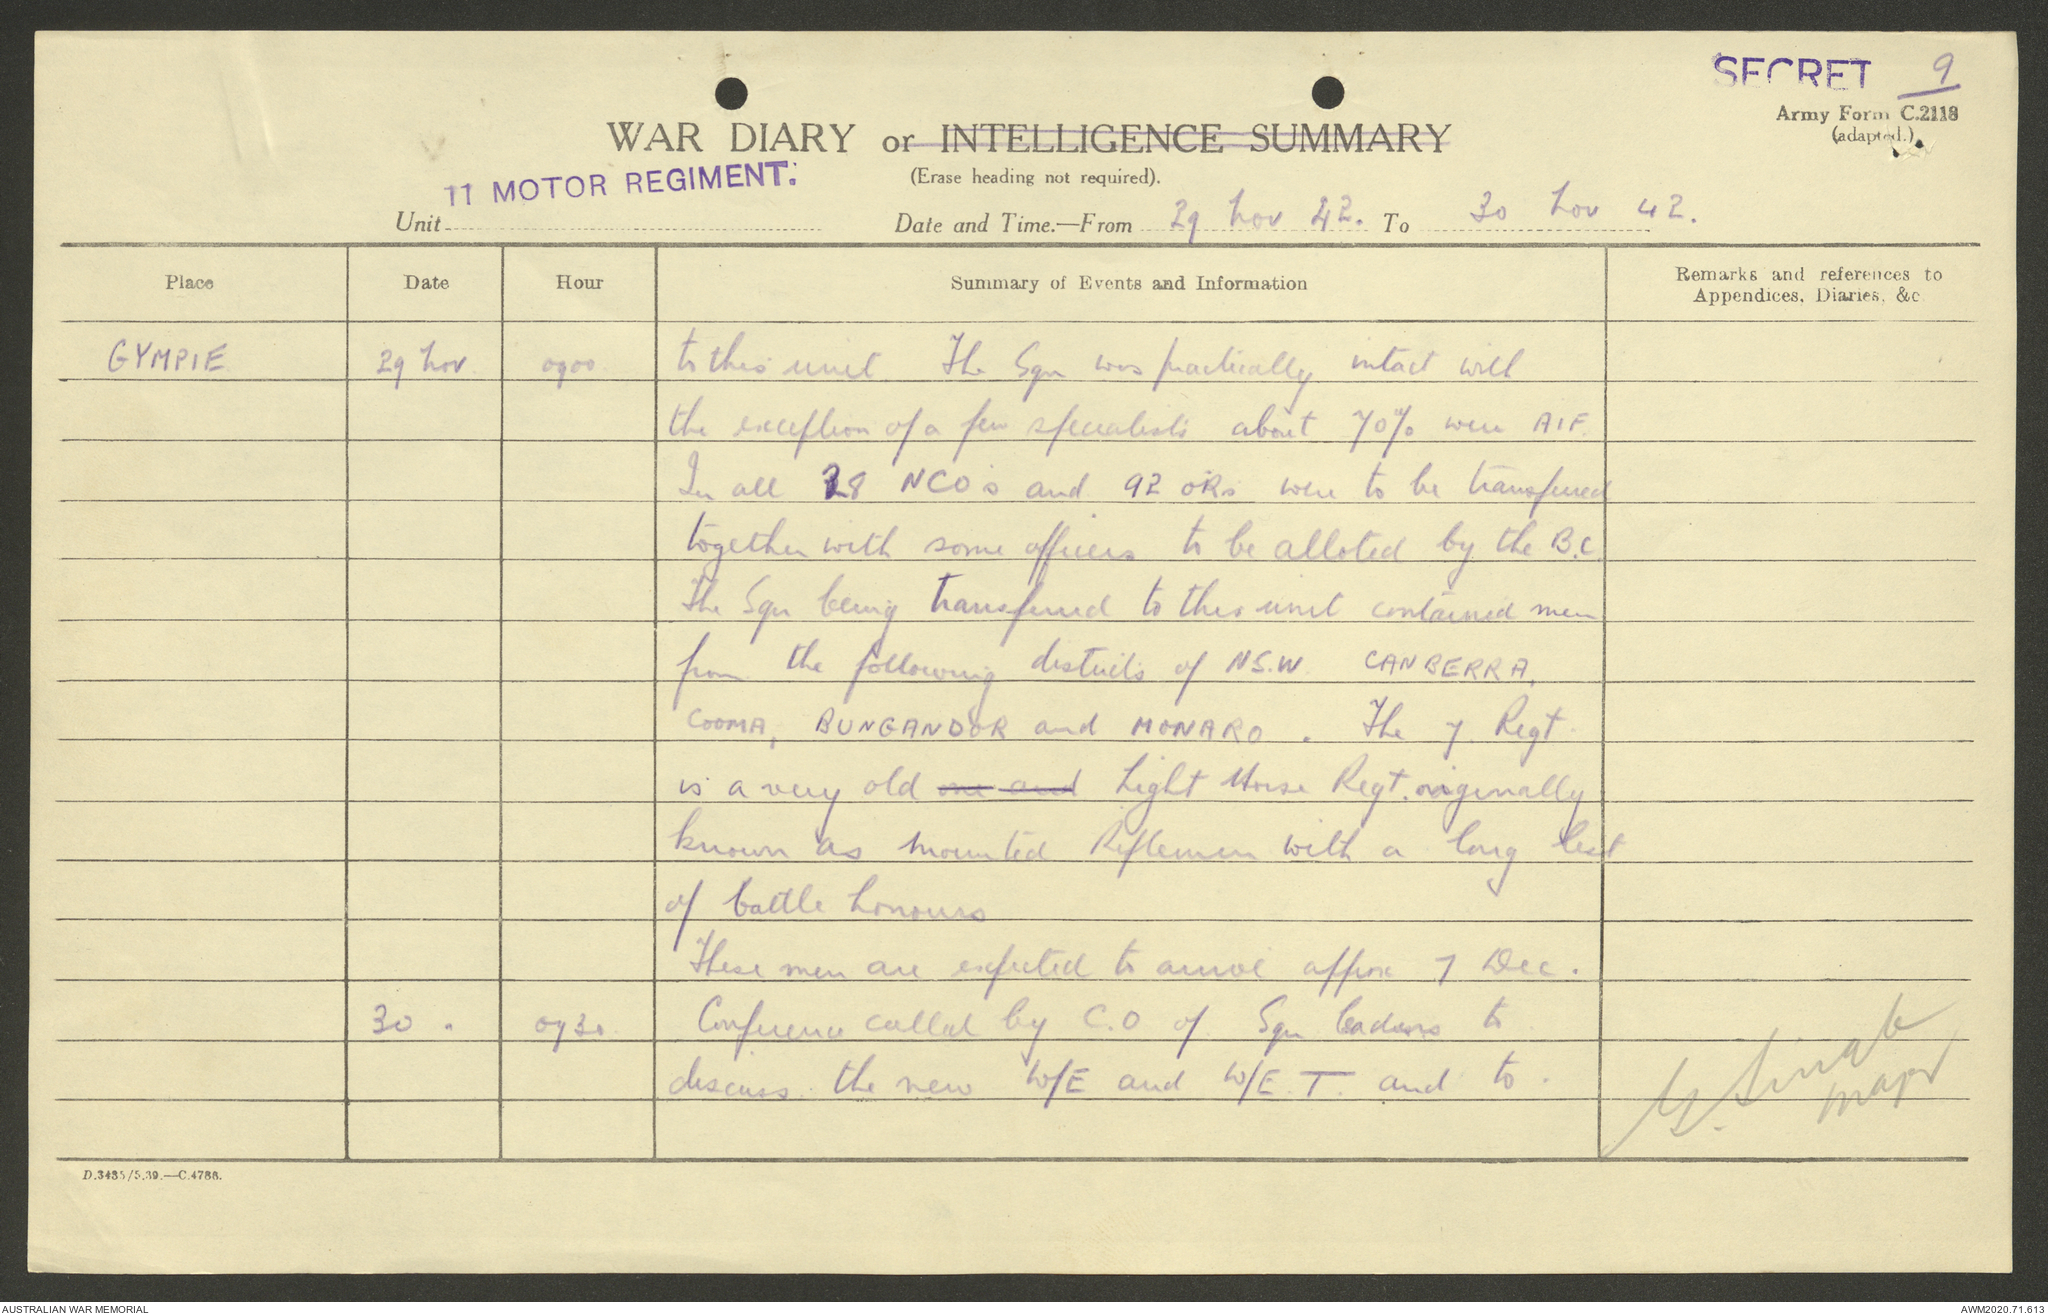 SECRET 9
Army Form C.2118
(adapted.)
WAR DIARY or INTELLIGENCE SUMMARY
(Erase heading not required).
11 MOTOR REGIMENT.
Unit
Date and Time.—From 29 Nov 42. To 30 Nov 42.
Place Date Hour Summary of Events and Information Remarks and references to
Appendices, Diaries, &c.
GYMPIE 29 Nov 0900 to this unit. The Sqn was practically intact with
the exception of a few specialists about 70% were AIF.
In all 28 NCO's and 92 ORs were to be transferred
together with some officers to be alloted by the B.C.
The Sqn being transferred to this unit contained men
from the following districts of N.S.W. CANBERRA,
COOMA, BUNGANDOR and MONARO. The 7 Regt
is a very old one and Light Horse Regt. originally
known as Mounted Riflemen with a long list
of battle honours
These men are expected to arrive approx 7 Dec.
30 " 0930 Conference called by C.O of Sqn leaders to
discuss the new W/E and W/E.T. and to.
Major
D.3435/5.39.—C.4788.
AUSTRALIAN WAR MEMORIAL
AWM2020.71.613